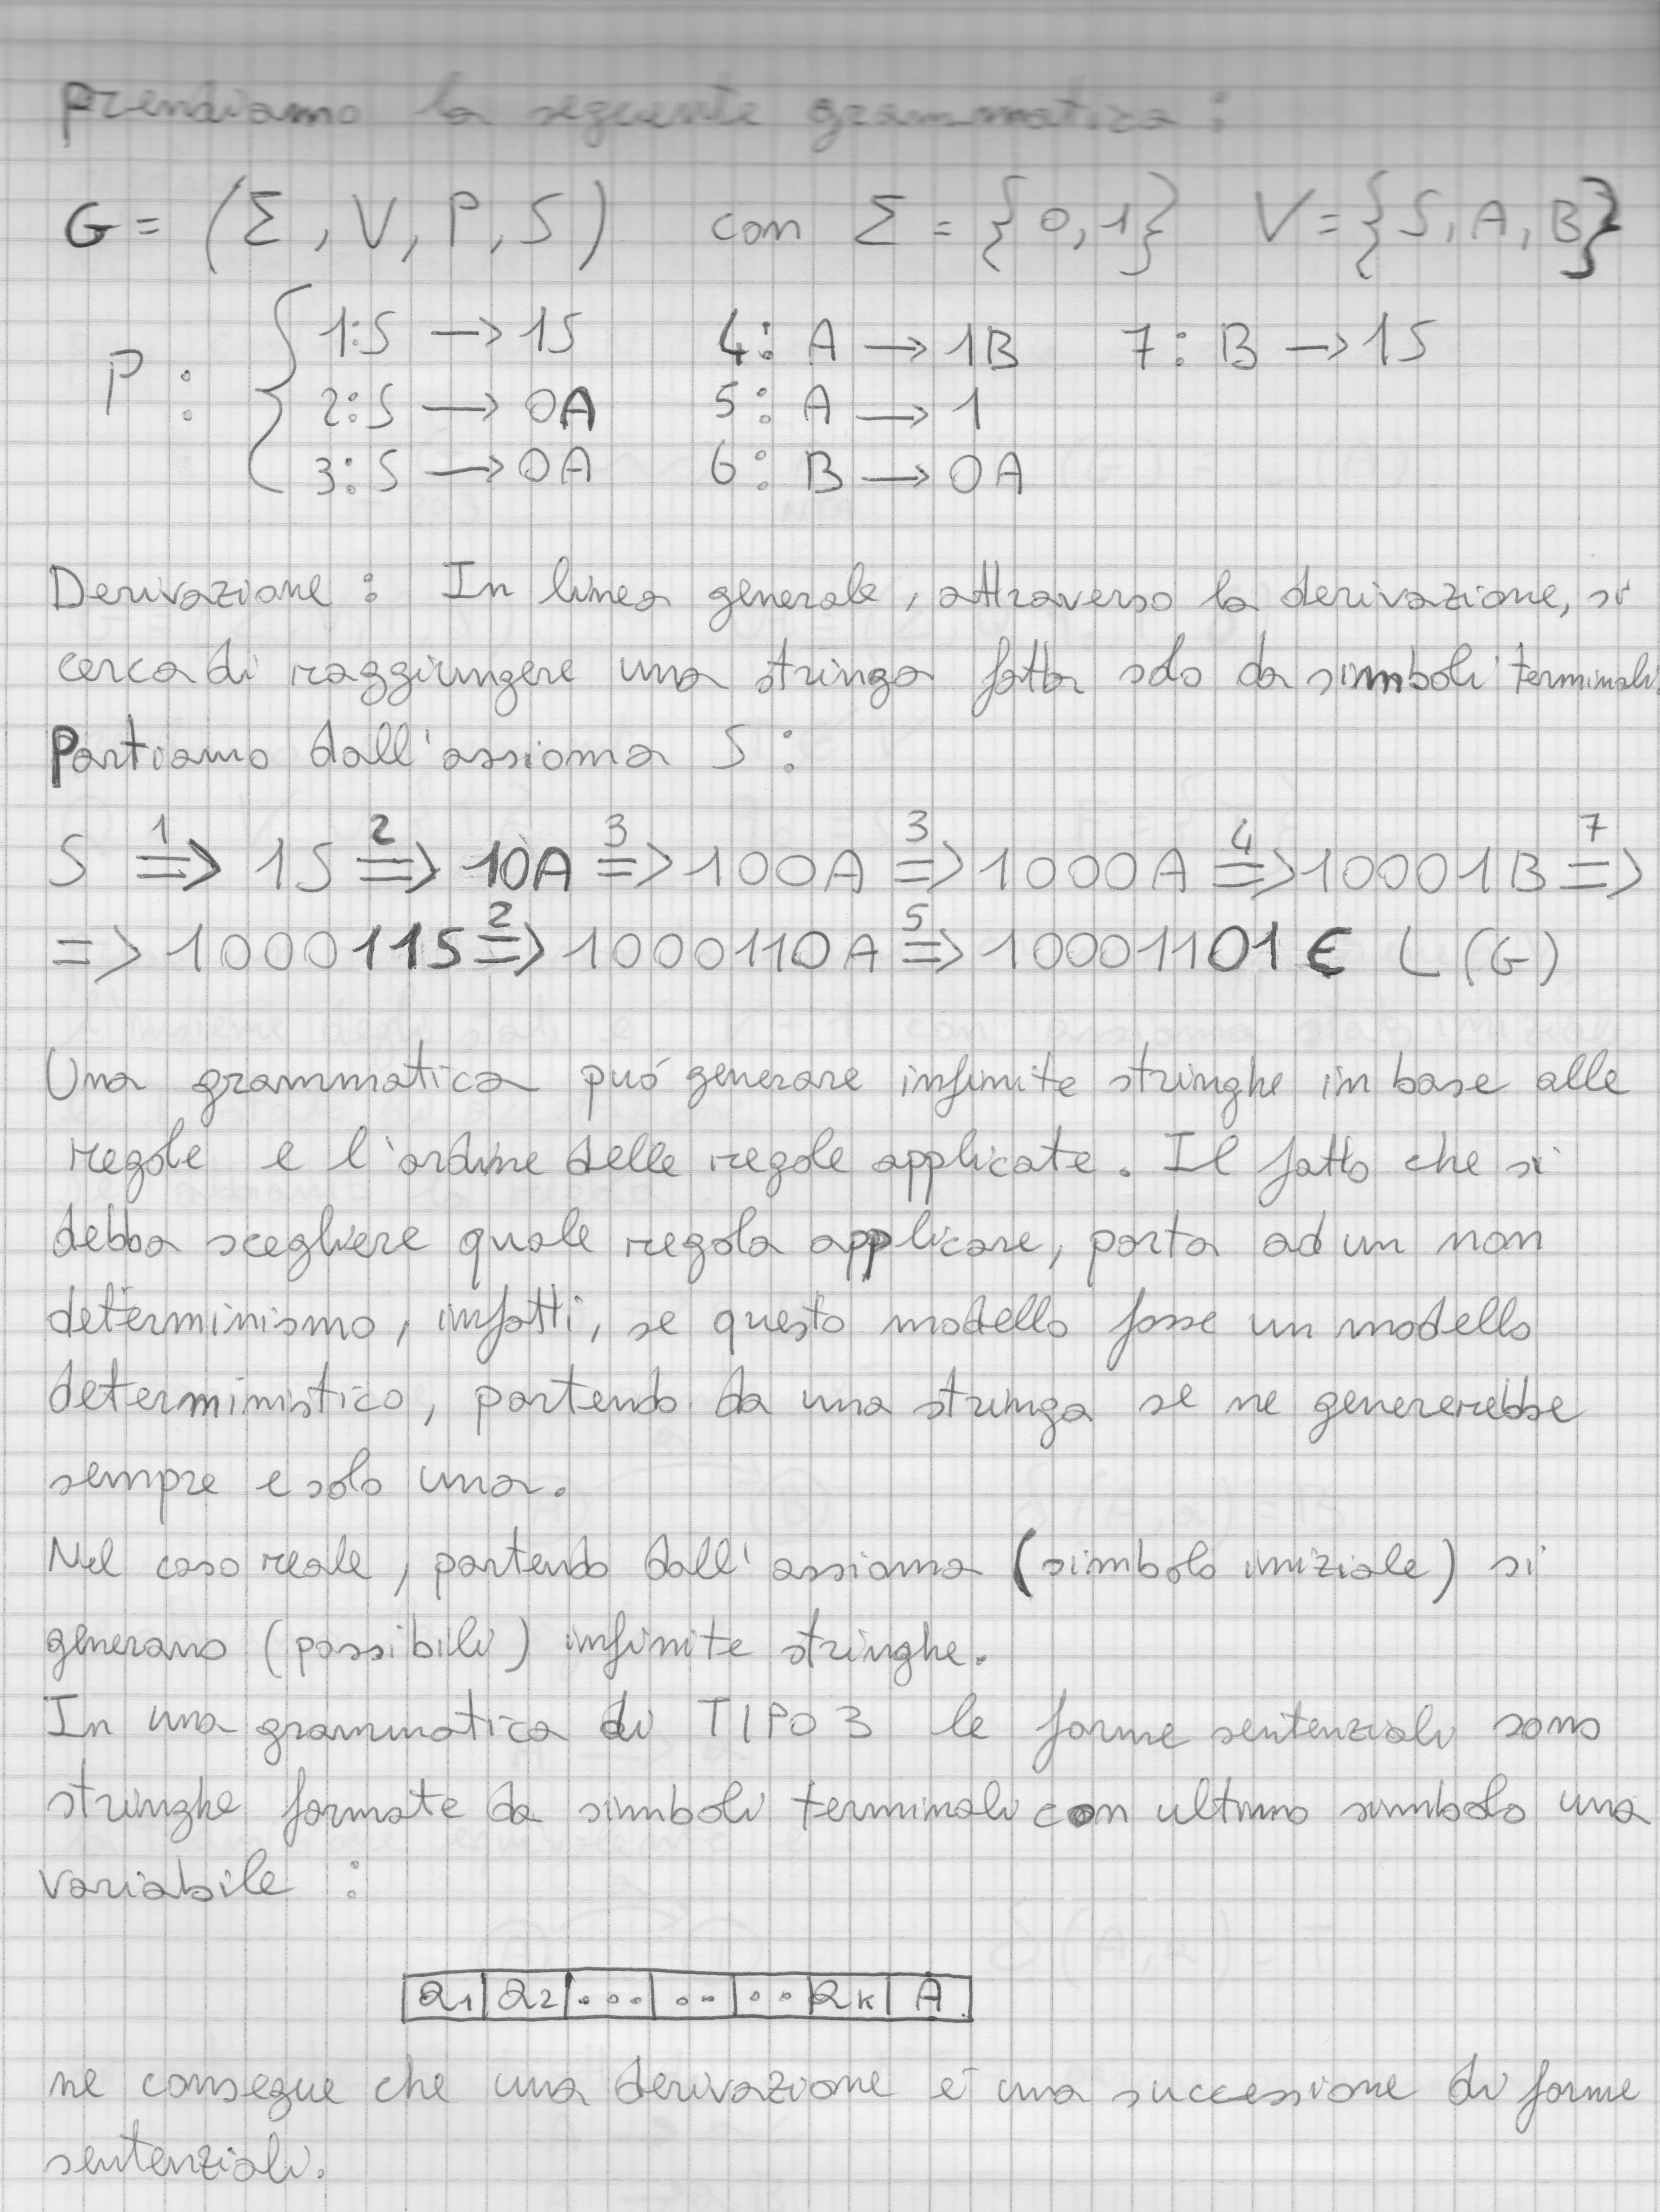 prendiamo la seguente grammatica:
G = (Σ, V, P, S) con Σ = {0,1} V = {S, A, B}
1: S → 1S 4: A → 1B 7: B → 1S
P : { 2: S → 0A 5: A → 1
3: S → 0A 6: B → 0A
Derivazione : In linea generale, attraverso la derivazione, si
cerca di raggiungere una stringa fatta solo da simboli terminali.
Partiamo dall'assioma S :
S =1=> 1S =2=> 10A =3=> 100A =3=> 1000A =4=> 10001B =7=>
=> 100011S =2=> 1000110A =5=> 10001101 ∈ L(G)
Una grammatica può generare infinite stringhe in base alle
regole e l'ordine delle regole applicate. Il fatto che si
debba scegliere quale regola applicare, porta ad un non
determinismo, infatti, se questo modello fosse un modello
deterministico, partendo da una stringa se ne genererebbe
sempre e solo una.
Nel caso reale, partendo dall'assioma (simbolo iniziale) si
generano (possibili) infinite stringhe.
In una grammatica di TIPO 3 le forme sentenziali sono
stringhe formate da simboli terminali con ultimo simbolo una
variabile :
a1 | a2 | ... | .. | .. | ak | A
ne consegue che una derivazione è una successione di forme
sentenziali.